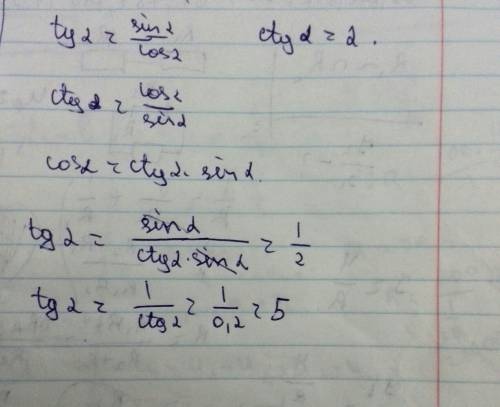 tg α = sin α / cos α    ctg α = 2.
ctg α = cos α / sin α
cos α = ctg α · sin α.
tg α = sin α / (ctg α · sin α) = 1/2
tg α = 1 / ctg α = 1 / 0,2 = 5